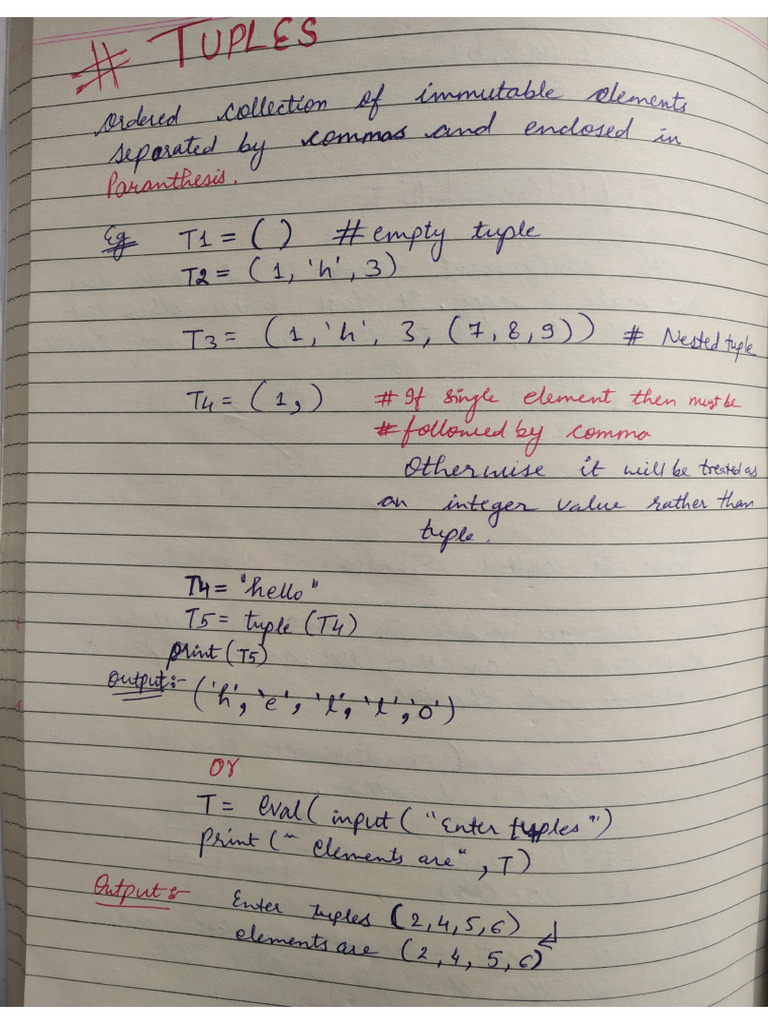 # TUPLES
ordered collection of immutable elements
separated by commas and enclosed in
Paranthesis.
Eg T1 = ( ) # empty tuple
T2 = (1, 'h', 3)
T3 = (1, 'h', 3, (7, 8, 9)) # Nested tuple
T4 = (1,) # If single element then must be
# followed by comma
Otherwise it will be treated as
an integer value rather than
tuple.
T4 = "hello"
T5 = tuple (T4)
print (T5)
Output:- ('h', 'e', 'l', 'l', 'o')
or
T = eval( input ( "Enter tuples")
print (" elements are", T)
Output:- Enter tuples (2,4,5,6) ↲
elements are (2, 4, 5, 6)